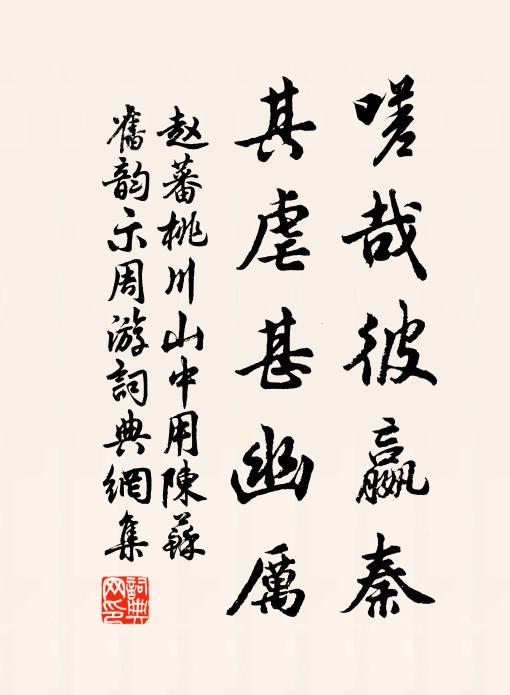 嗟哉彼嬴秦
其虐甚幽厲
赵蕃桃川山中用陳蘇
舊韵示周游詞典網集
詞典网印